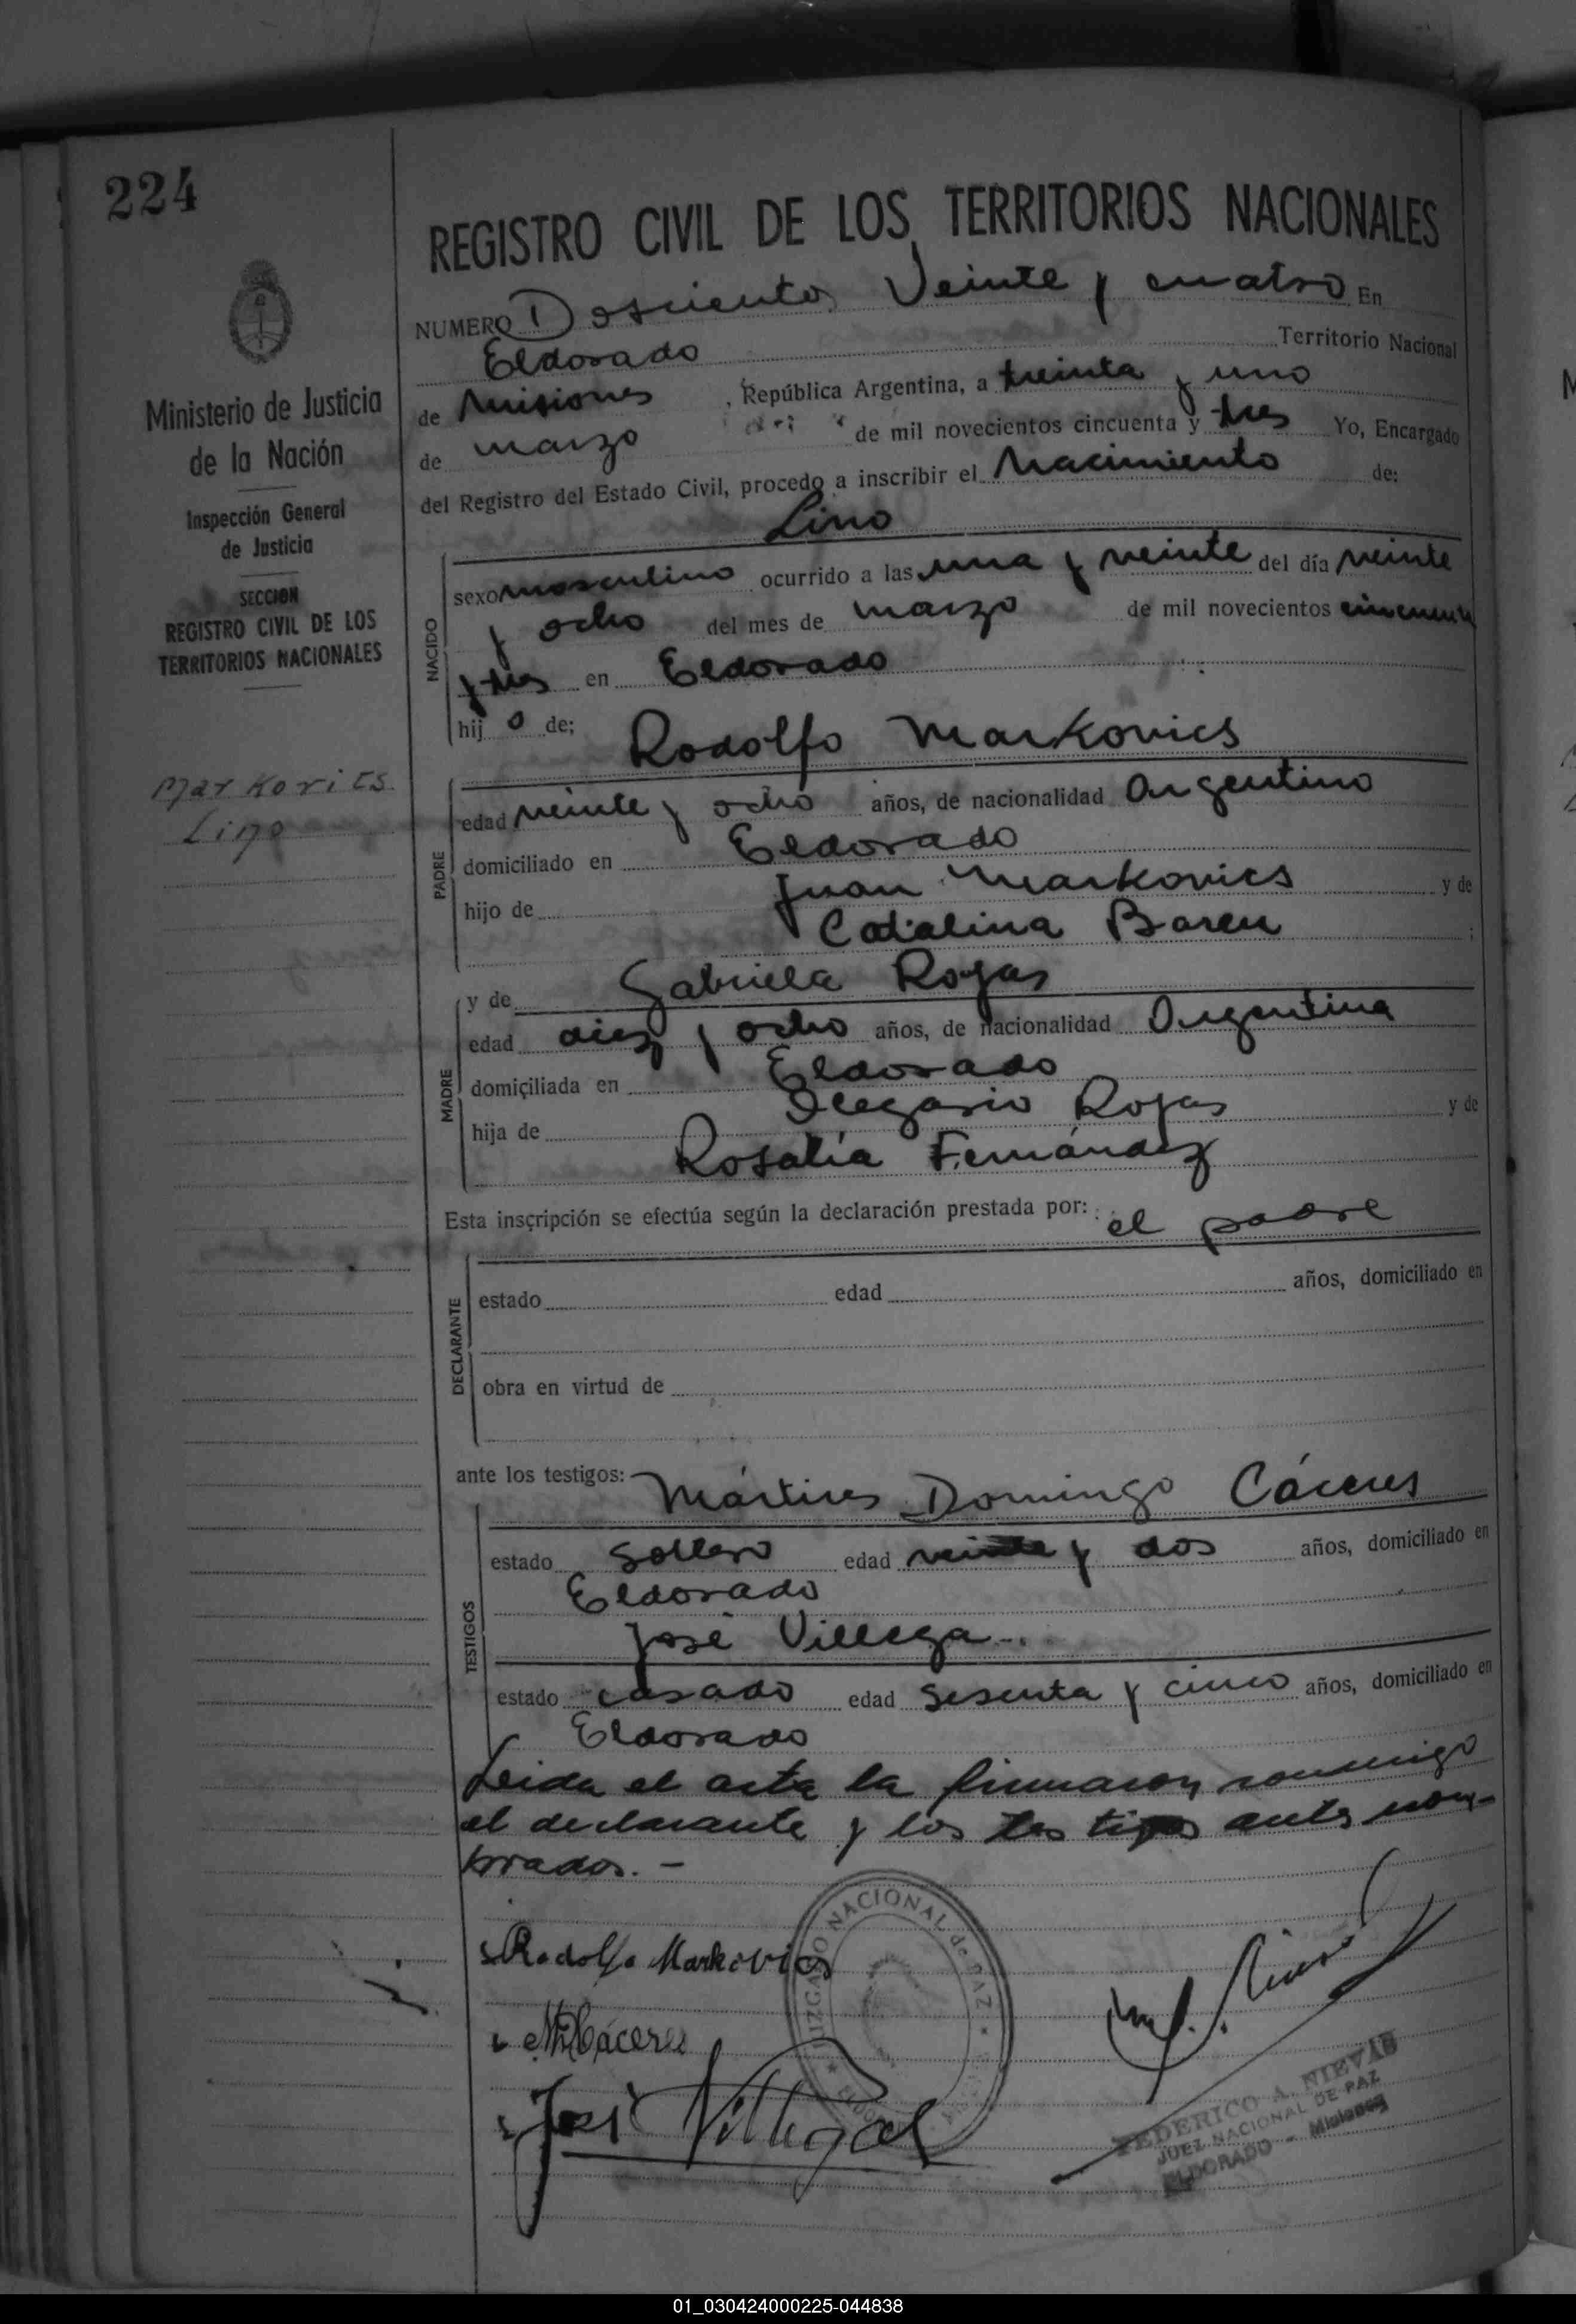 224
REGISTRO CIVIL DE LOS TERRITORIOS NACIONALES
NUMERO Doscientos Veinte y cuatro En
Eldorado Territorio Nacional
de Misiones , República Argentina, a treinta y uno
de marzo de mil novecientos cincuenta y tres Yo, Encargado
del Registro del Estado Civil, procedo a inscribir el Nacimiento de:
Lino
Ministerio de Justicia
de la Nación
Inspección General
de Justicia
SECCION
REGISTRO CIVIL DE LOS
TERRITORIOS NACIONALES
Markovics
Lino
NACIDO
sexo masculino ocurrido a las una y veinte del día veinte
y ocho del mes de marzo de mil novecientos cincuenta
y tres en Eldorado
hij o de;
Rodolfo Markovics
PADRE
edad veinte y ocho años, de nacionalidad Argentino
domiciliado en Eldorado
hijo de Juan Markovics y de
Catalina Baren ;
MADRE
y de Gabriela Rojas
edad diez y ocho años, de nacionalidad Argentina
domiciliada en Eldorado
hija de Olegario Rojas y de
Rosalía Fernández
Esta inscripción se efectúa según la declaración prestada por: el padre
DECLARANTE
estado edad años, domiciliado en
obra en virtud de
ante los testigos: Mártires Domingo Cáceres
TESTIGOS
estado soltero edad veinte y dos años, domiciliado en
Eldorado
José Villega
estado casado edad sesenta y cinco años, domiciliado en
Eldorado
Leida el acta la firmaron conmigo
el declarante y los testigos antes nom-
brados. -
Rodolfo Markovics
M D Cáceres
José Villegas
JUZGADO NACIONAL de PAZ
FEDERICO A. NIEVAS
JUEZ NACIONAL DE PAZ
ELDORADO - Misiones
01_030424000225-044838